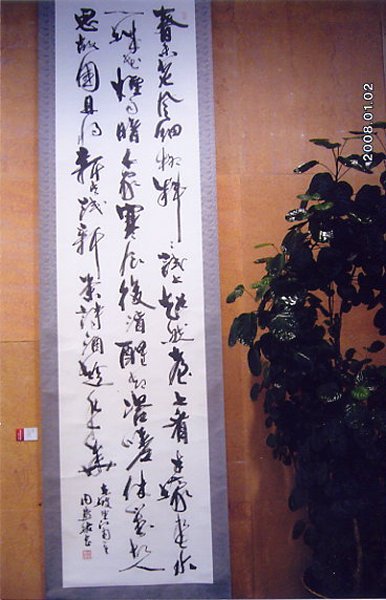 春未老風細柳斜〻試上超然臺上看半壕春水
一城花煙雨暗千家寒食後酒醒卻咨嗟休對故人
思故國且將新火試新茶詩酒趁年華
東坡望江南
2008.01.02